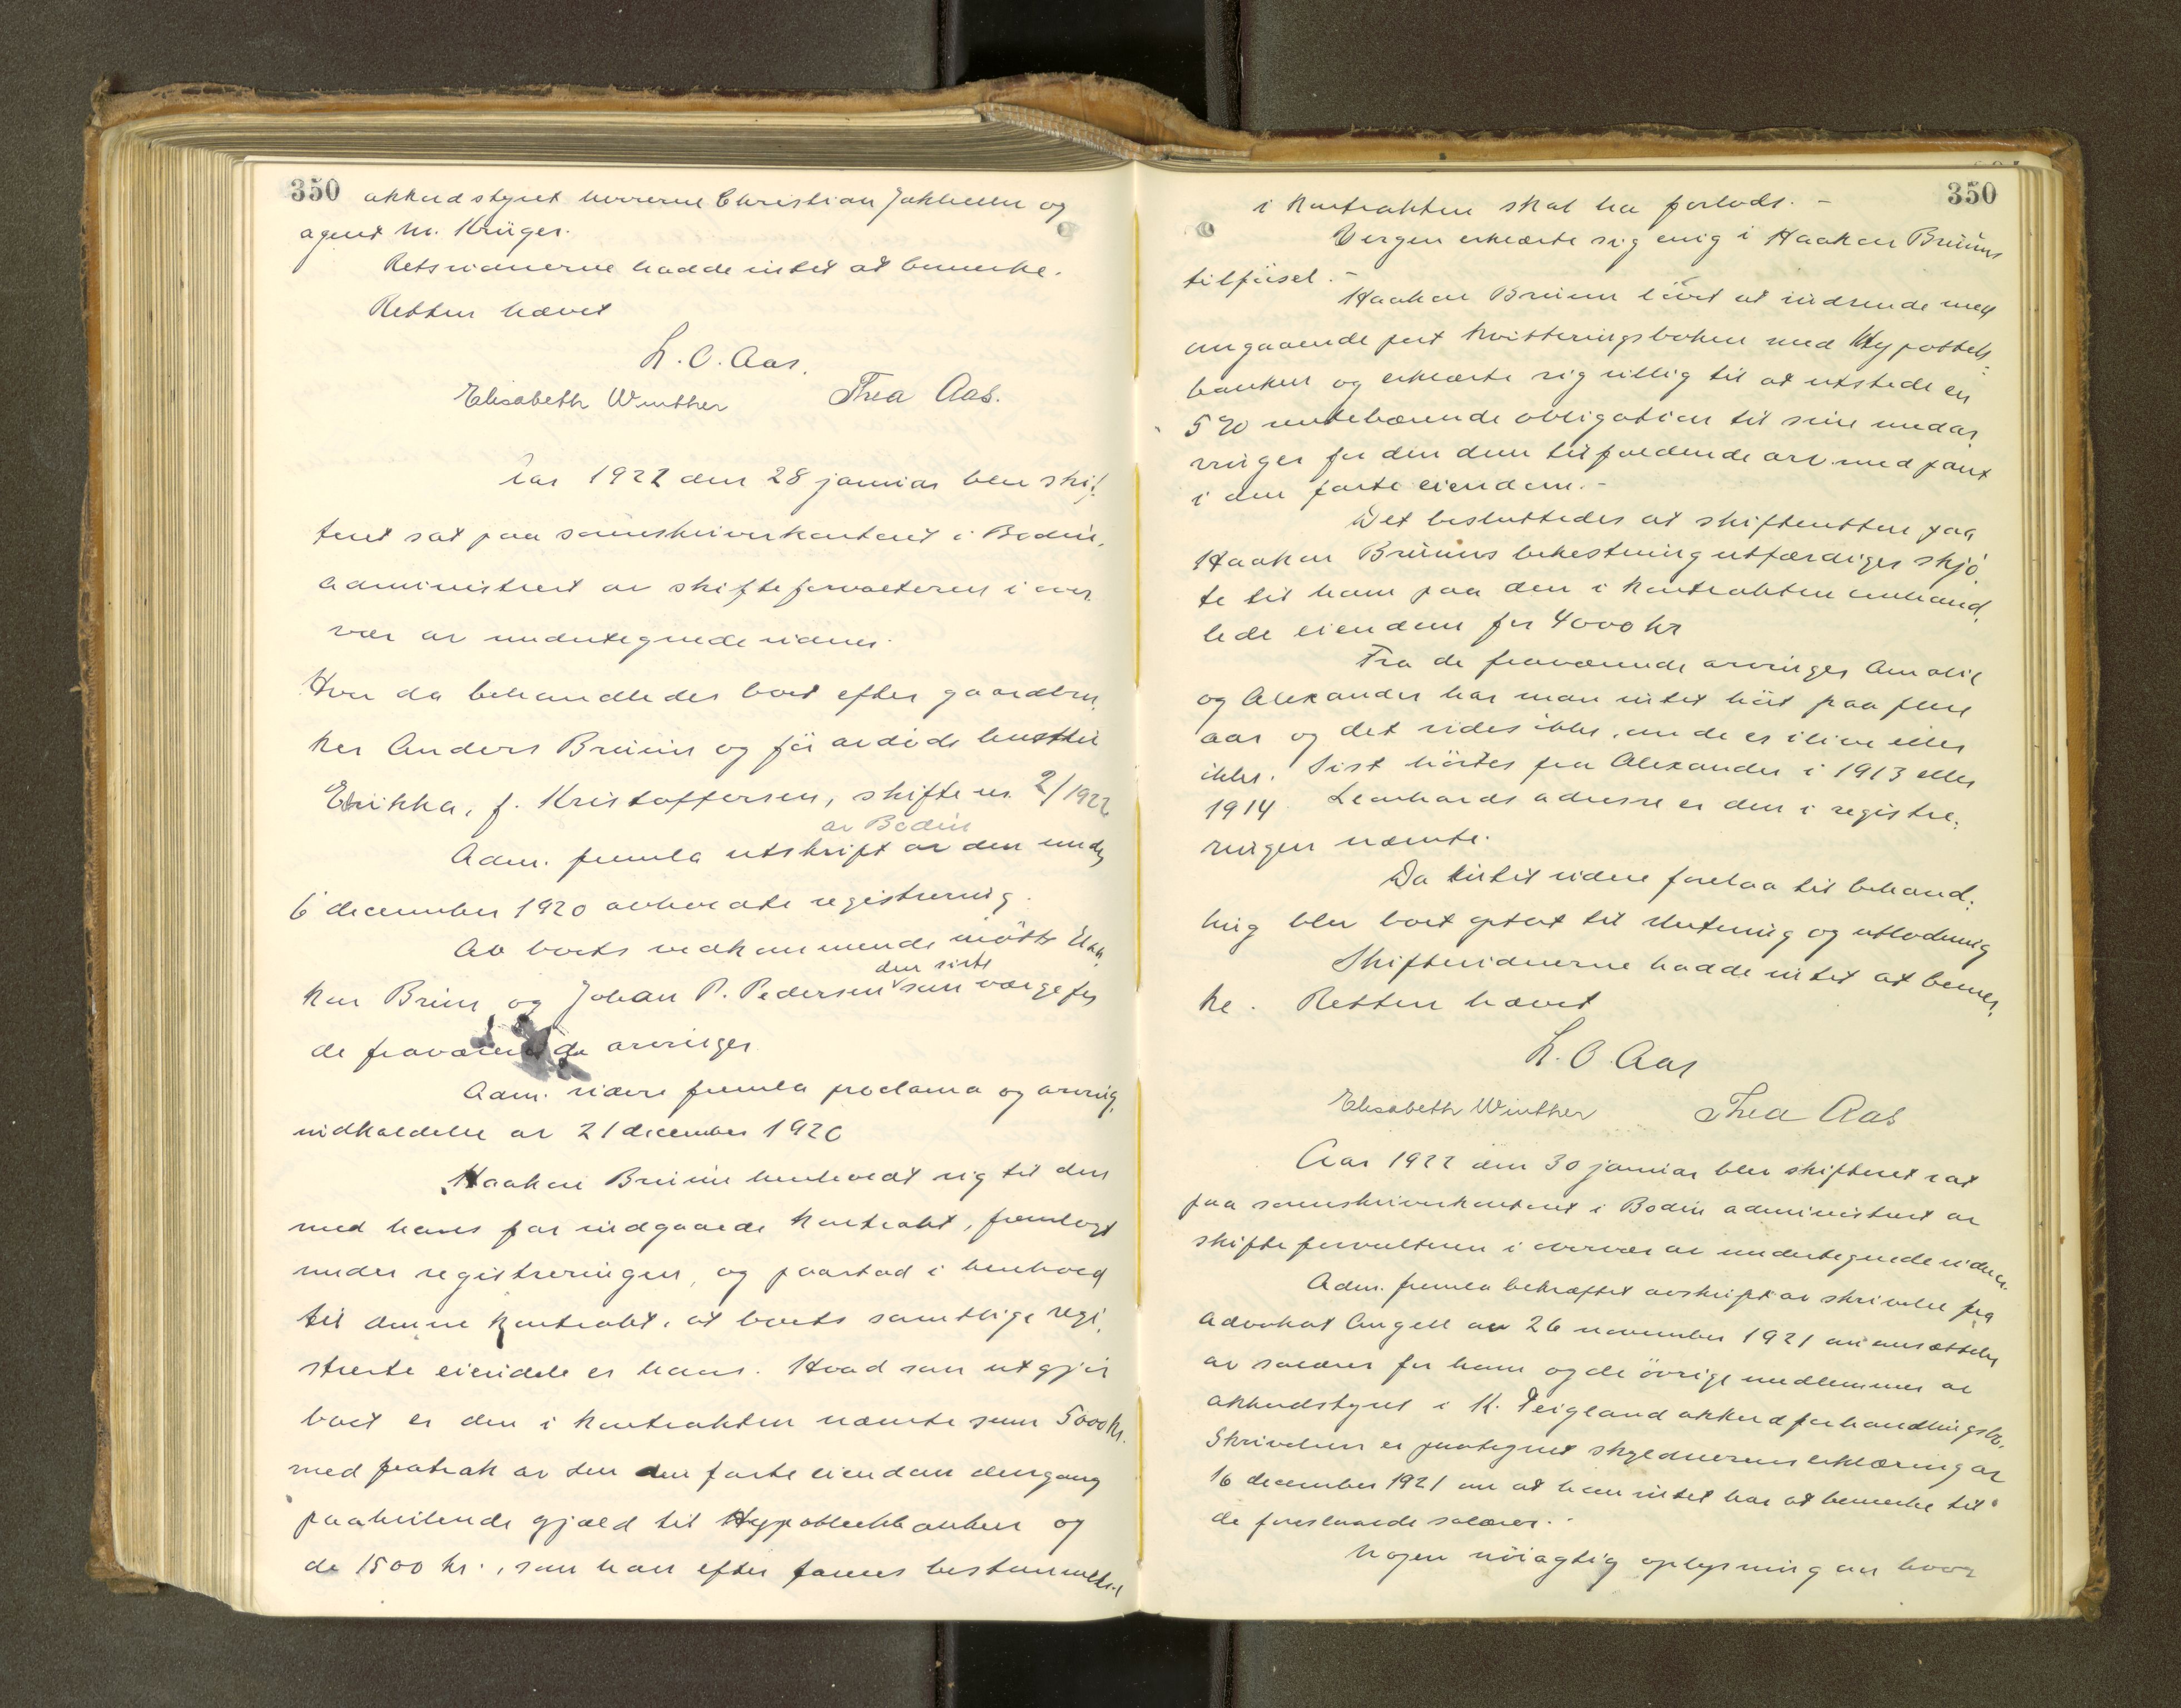 350
akkordstyret herrerne Christian Jakhelln og
agent M. Krüger.
Retsvidnerne hadde intet at bemerke.
Retten hævet
L. O. Aas.
Elisabeth Winther Thea Aas.
Aar 1922 den 28 januar blev skif-
teret sat paa sorenskriverkontoret i Bodin,
administrert av skifteforvalteren i over-
vær av undertegnede vidner.
Hvor da behandledes boet efter gaardbru-
ker Anders Bruun og før avdøde hustru
Erikka, f. Kristoffersen, skifte nr. 2/1922
av Bodin
Adm. fremla utskrift av den under
6 december 1920 avholdte registrering.
Av boets vedkommende møtte Haa-
kon Bruun og Johan P. Pedersen den siste som værge for
de fraværende arvinger
Adm. videre fremla proclama og arving-
indkaldelse av 21 december 1920
Haakon Bruun henholdt sig til den
med hans far indgaaede kontrakt, fremlagt
under registreringen, og paastod i henhold
til denne kontrakt, at boets samtlige regi-
strerte eiendele er hans. Hvad som utgjør
boet er den i kontrakten nævnte sum 5000 kr.
med fratrak av den den faste eiendom dengang
paahvilende gjæld til Hypothekbanken og
de 1500 kr., som han efter farens bestemmelse
350
i kontrakten skal ha forlods. -
Vergen erklærte sig enig i Haakon Bruuns
tilførsel. -
Haakon Bruun lovet at indsende med
omgaaende post kvitteringsboken med Hypothek-
banken og erklærte sig villig til at utstede en
5 % rentebærende obligation til sine medar-
vinger for den dem tilfaldende arv med pant
i den faste eiendom. -
Det besluttedes at skifteretten paa
Haakon Bruuns bekostning utfærdiger skjø-
te til ham paa den i kontrakten omhand-
lede eiendom for 4000 kr
Fra de fraværende arvinger Amalie
og Alexander har man intet hørt paa flere
aar og det vides ikke, om de er ilive eller
ikke. Sist hørtes fra Alexander i 1913 eller
1914. Leonhards adresse er den i registre-
ringen nævnte.
Da intet videre forelaa til behand-
ling blev boet optat til slutning og utlodning
Skiftevidnerne hadde intet at bemer-
ke. Retten hævet
L. O. Aas
Elisabeth Winther Thea Aas
Aar 1922 den 30 januar blev skifteret sat
paa sorenskriverkontoret i Bodin administrert av
skifteforvalteren i overvær av undertegnede vidner.
Adm. fremla bekræftet avskrift av skrivelse fra
advokat Angell av 26 november 1921 om ansættelse
av salærer for ham og de øvrige medlemmer av
akkordstyret i K. Teigland akkordforhandlingsbo.
Skrivelsen er paategnet skyldnerens erklæring av
16 december 1921 om at han intet har at bemerke til
de foreslaaede salærer. -
Nogen nøiagtig oplysning om hvor